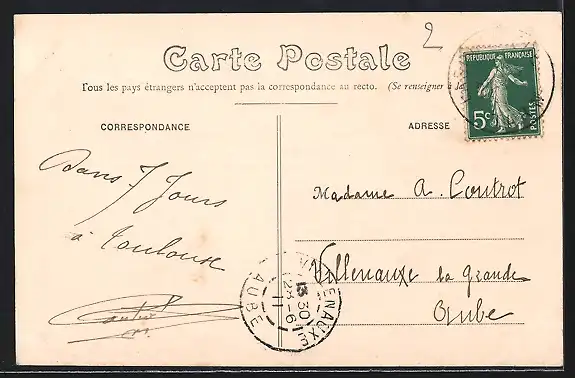 2
Carte Postale
Tous les pays étrangers n'acceptent pas la correspondance au recto. (Se renseigner à la
RÉPUBLIQUE FRANÇAISE
5c
POSTES
CORRESPONDANCE
ADRESSE
Dans 7 Jours
à Toulouse
Madame A. Coutrot
Villenauxe la Grande
Aube
VILLENAUXE
13 30
28-6
11
AUBE